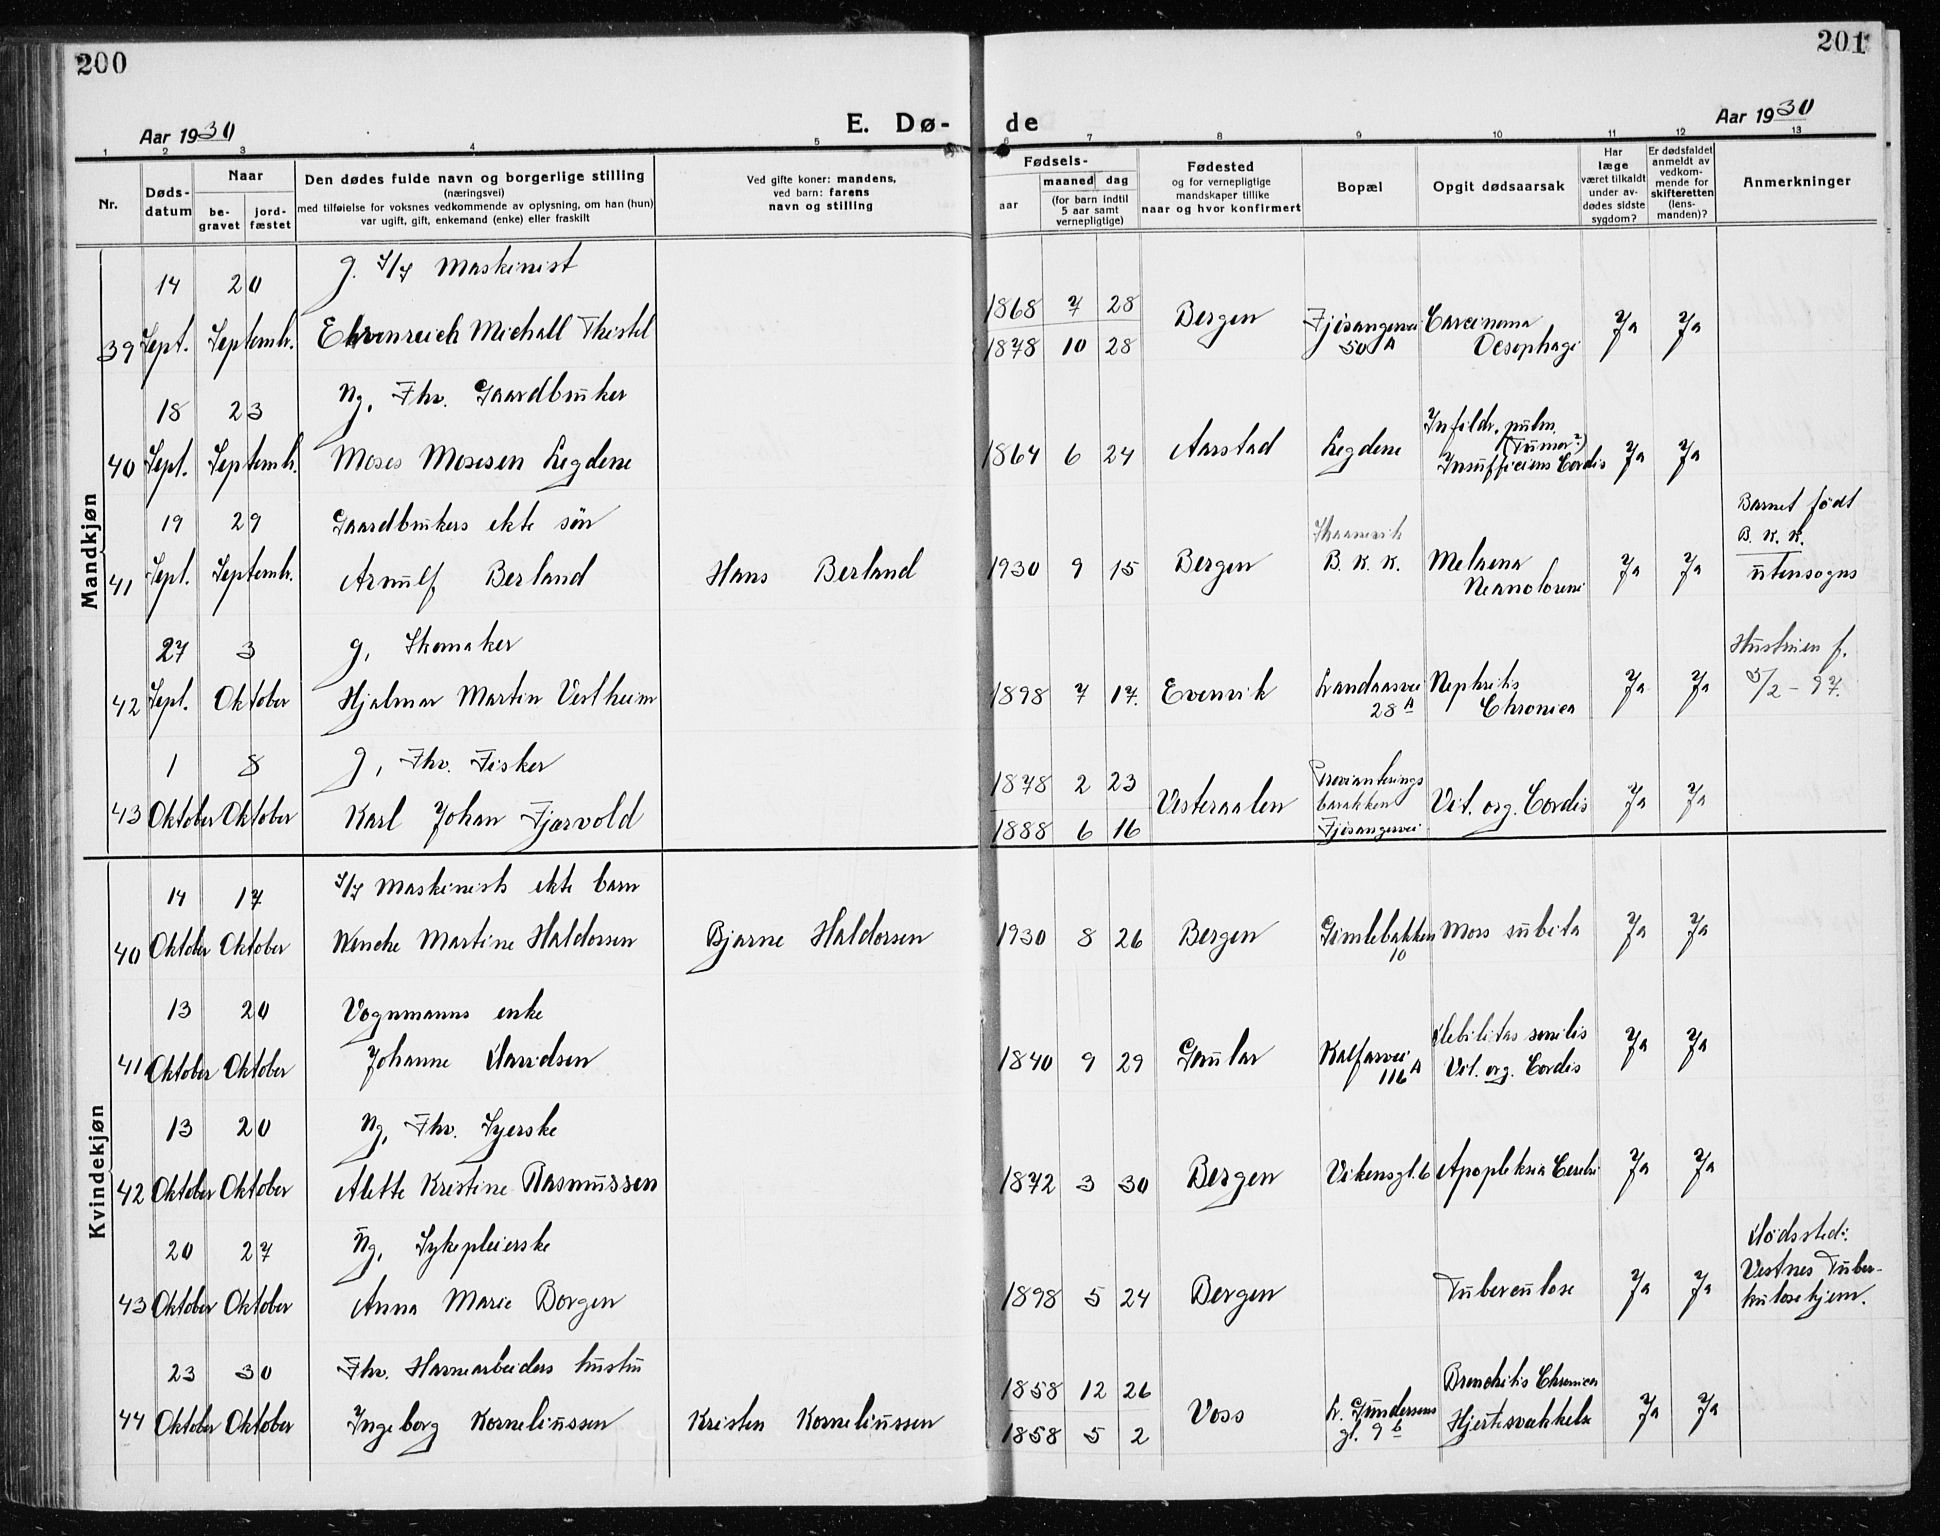 200
201
E. Dø- de
Aar 1930
Aar 1930
1 2 3 4 5 6 7 8 9 10 11 12 13
Nr.
Døds-
datum
Naar
be-
gravet
jord-
fæstet
Den dødes fulde navn og borgerlige stilling
(næringsvei)
med tilføielse for voksnes vedkommende av oplysning, om han (hun)
var ugift, gift, enkemand (enke) eller fraskilt
Ved gifte koner: mandens,
ved barn: farens
navn og stilling
Fødsels-
aar
maaned dag
(for barn indtil
5 aar samt
vernepligtige)
Fødested
og for vernepligtige
mandskaper tillike
naar og hvor konfirmert
Bopæl
Opgit dødsaarsak
Har
læge
været tilkaldt
under av-
dødes sidste
sygdom?
Er dødsfaldet
anmeldt av
vedkom-
mende for
skifteretten
(lens-
manden)?
Anmerkninger
Mandkjøn
14 20 g. Maskinist
39 Sept. Septemb. Ehrenreich Michall Thistel
1868 7 28
1878 10 28
Bergen
Fjøsangervei
50 A
Carcinoma
Oesophagi
Ja Ja
18 23 Ug. Fhv. Gaardbruker
40 Sept. Septemb. Moses Mosesen Legdene
1864 6 24 Aarstad Legdene
Infiltr. pulm.
(Tumor?)
Insufficiens Cordis
Ja Ja
19 29 Gaardbrukers ekte søn
41 Sept. Septemb. Arnulf Berland Hans Berland
1930 9 15 Bergen
B. K. K.
Melaena
Ja Ja
Barnet født
B. K. K.
utensogns
27 3 g. Skomaker
42 Sept. Oktober Hjalmar Martin Vestheim
1898 7 17. Evenvik
Landaasvei
28 A
Nephritis
Chronica
Ja Ja
Hustruen f.
5/2 - 97.
1 8 g, Fhv. Fisker
43 Oktober Oktober Karl Johan Fjærvold
1878 2 23
1888 6 16
Vesteraalen
Provianterings
barakken
Fjøsangervei
Vit. org. Cordis
Ja Ja
Kvindekjøn
14 17 Maskinists ekte barn
40 Oktober Oktober Wenche Martine Haldorsen Bjarne Haldorsen
1930 8 26 Bergen
Gimlebakken
10
Mors subita
Ja Ja
13 20 Vognmanns enke
41 Oktober Oktober Johanne Davidsen
1840 9 29 Gaular
Kalfarvei
116 A
Debilitas senilis
Vit. org. Cordis
Ja Ja
13 20 Ug, Fhv. Syerske
42 Oktober Oktober Alette Kristine Rasmussen
1872 3 30 Bergen Vikensgt. 6 Apopleksia Cerebri
Ja Ja
20 27 Ug, Sykepleierske
43 Oktober Oktober Anna Marie Borgen
1898 5 24 Bergen
Tuberculose
Ja Ja
Dødssted:
Vestnes Tuber-
kulosehjem.
23 30 Fhv. Havnearbeiders hustru
44 Oktober Oktober Ingeborg Korneliussen Kristen Korneliussen
1858 12 26
1858 5 2
Voss
L. Gundersens
gt. 9 b
Bronchitis Chronica
Hjertesvækkelse
Ja Ja